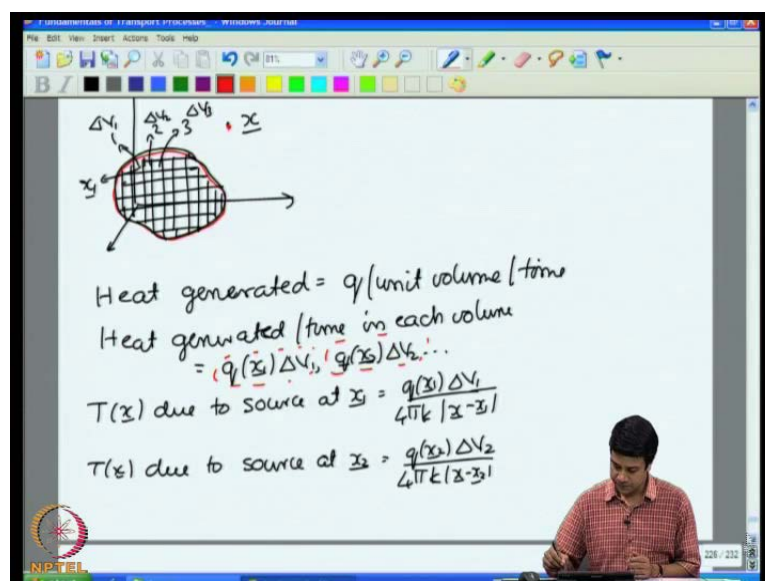 Fundamentals of Transport Processes - Windows Journal
File Edit View Insert Actions Tools Help
81%
B I
ΔV₁ ΔV₂ ΔV₃
1 2 3 . x
x₁
Heat generated = q/unit volume/time
Heat generated/time in each volume
= q(x₁)ΔV₁, q(x₂)ΔV₂...
T(x) due to source at x₁ = q(x₁)ΔV₁ / 4πk|x-x₁|
T(x) due to source at x₂ = q(x₂)ΔV₂ / 4πk|x-x₂|
226 / 232
NPTEL